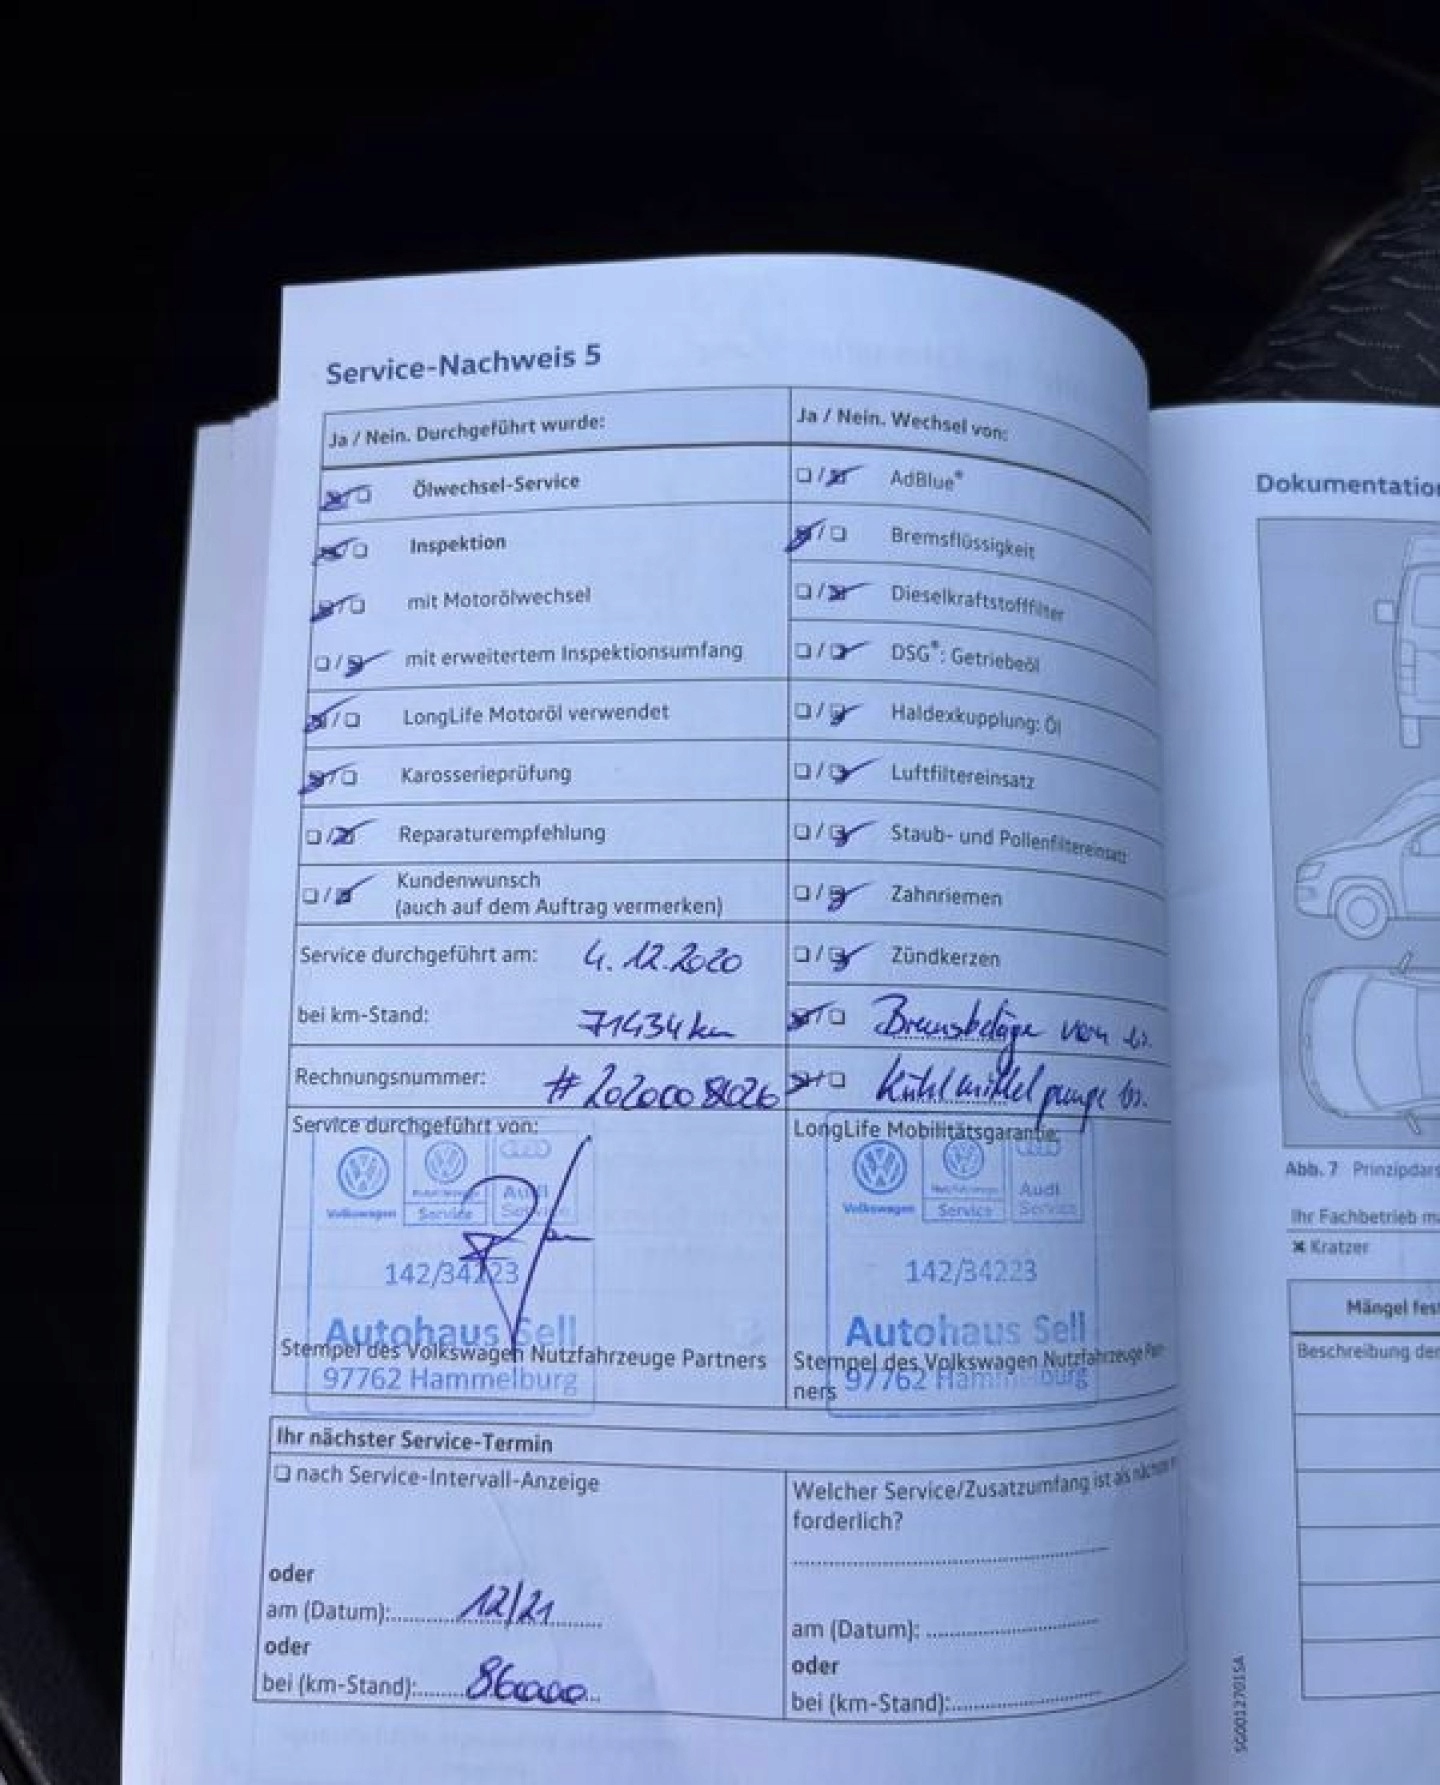 Service-Nachweis 5
Ja / Nein. Durchgeführt wurde:
Ölwechsel-Service
Inspektion
mit Motorölwechsel
mit erweitertem Inspektionsumfang
LongLife Motoröl verwendet
Karosserieprüfung
Reparaturempfehlung
Kundenwunsch
(auch auf dem Auftrag vermerken)
Service durchgeführt am: 4.12.2020
bei km-Stand: 71434 km
Rechnungsnummer:
Ja / Nein. Wechsel von:
AdBlue®
Bremsflüssigkeit
Dieselkraftstofffilter
DSG®: Getriebeöl
Haldexkupplung: Öl
Luftfiltereinsatz
Staub- und Pollenfiltereinsatz
Zahnriemen
Zündkerzen
Bremsbeläge vorn
Kühlmittel
Service durchgeführt von:
Volkswagen
Service
Audi
Service
142/34223
Autohaus Sell
Stempel des Volkswagen Nutzfahrzeuge Partners
97762 Hammelburg
LongLife Mobilitätsgarantie:
Volkswagen
Service
Audi
Service
142/34223
Autohaus Sell
Stempel des Volkswagen Nutzfahrzeuge Part-
ners
97762 Hammelburg
Ihr nächster Service-Termin
nach Service-Intervall-Anzeige
oder
am (Datum): 12/21
oder
bei (km-Stand): 86000
Welcher Service/Zusatzumfang ist als nächstes
forderlich?
am (Datum):
oder
bei (km-Stand):
Dokumentation
Abb. 7 Prinzipdars
Ihr Fachbetrieb ma
Kratzer
Mängel fest
Beschreibung der
SG0012701SA